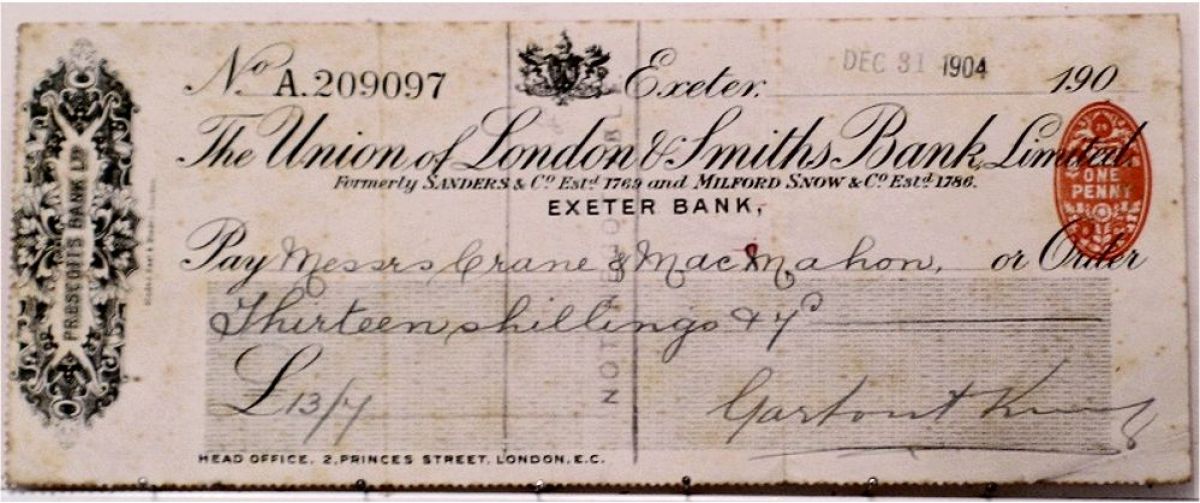 No A.209097
Exeter, DEC 31 1904 190
The Union of London & Smiths Bank, Limited.
Formerly SANDERS & Co Estd 1769 and MILFORD SNOW & Co Estd 1786.
EXETER BANK,
ONE
PENNY
Pay Messrs Crane & MacMahon, or Order
Thirteen shillings & 7d
£13/7
HEAD OFFICE, 2, PRINCES STREET, LONDON, E.C.
PRESCOTTS BANK LTD
NOT NEGOTIABLE